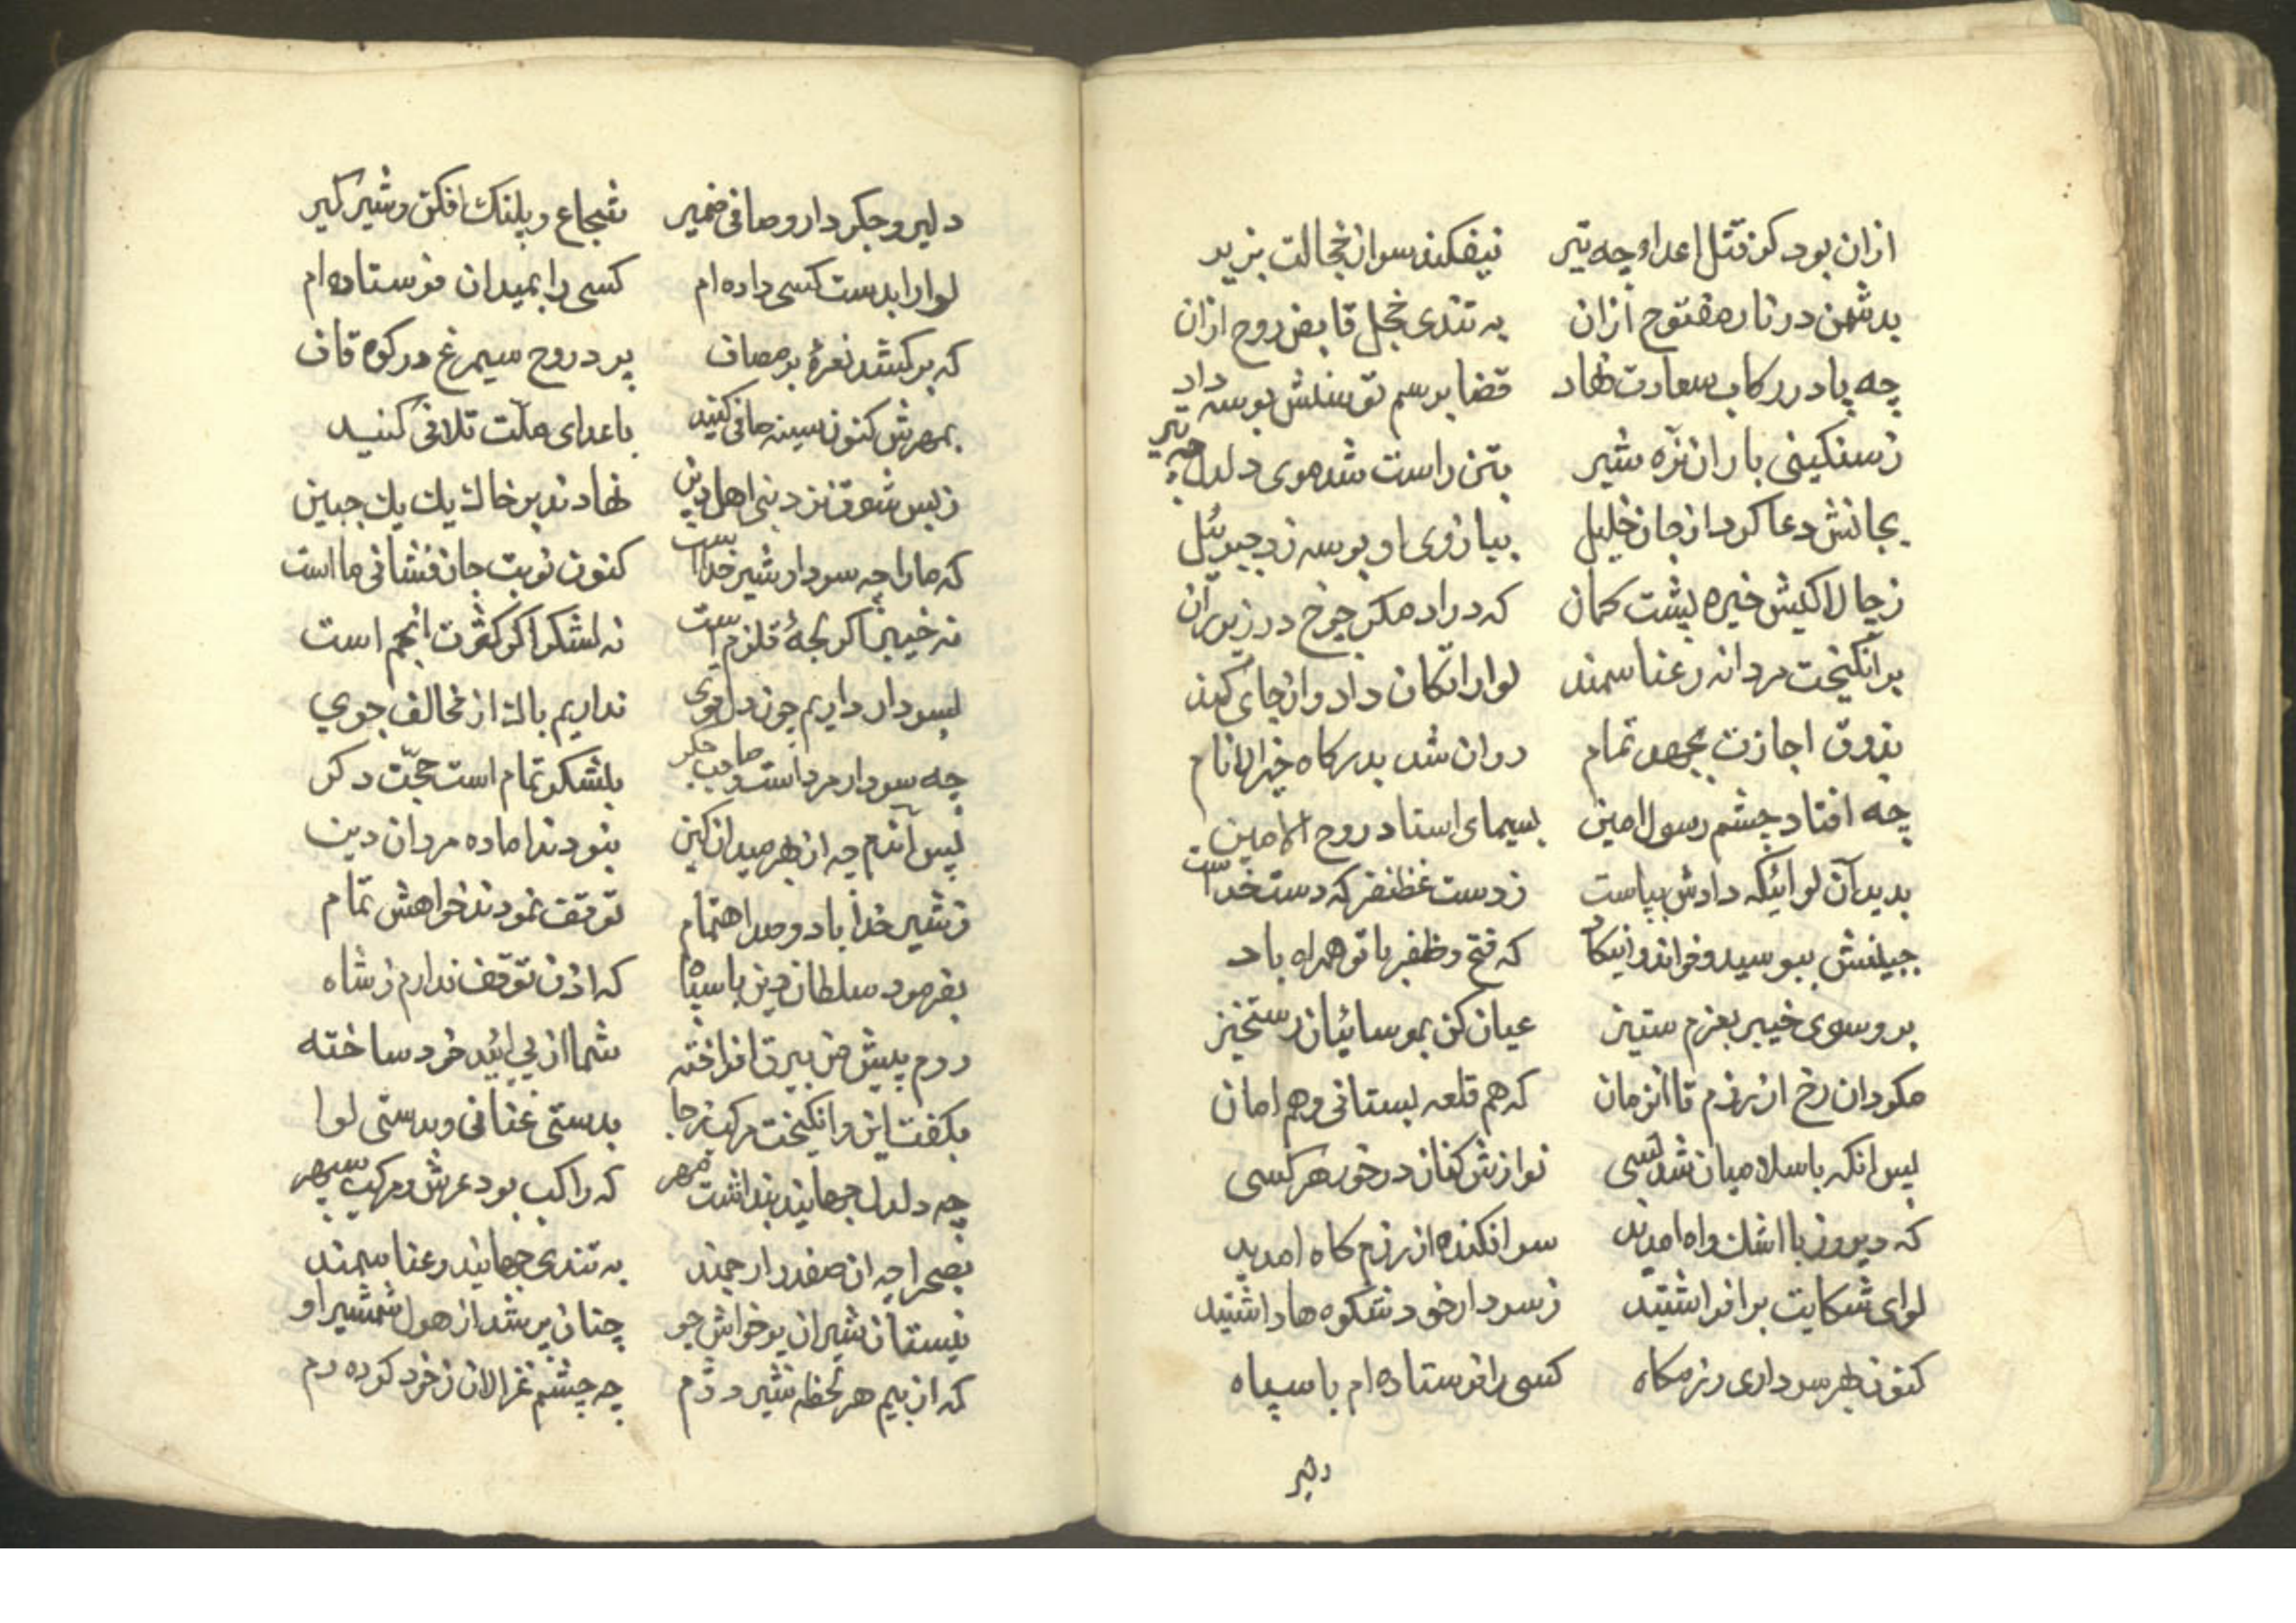 ازان بود کز قتل اعدا چه تیر نیفکند سر از خجالت بزیر
بدشمن در نار مفتوح ازان به تندی خجل قابض روح ازان
چه پا در رکاب سعادت نهاد قضا بر سم توسنش بوسه داد
ز سنکینی بار ان نره شیر بتن راست شد موی دلدل چه تیر
بجانش دعا کرد از جان خلیل ببازوی او بوسه زد جبرئیل
ز چالاکیش خیره پشت کمان که در ادهم چرخ در زیر ران
بر انکیخت مردانه رعنا سمند لوا را تکان داد و از جای کند
بذوق اجازت بجهد تمام روان شد بدرکاه خیر الانام
چه افتاد چشم رسول امین بسیمای استاد روح الامین
بدید آن لوائیکه دادش بپاست ز دست غظنفر که دست خداست
جبینش ببوسید و خواند وانیکاد که فتح و ظفر با تو همراه باد
برو سوی خیبر بعزم ستیز عیان کن بموسائیان رستخیز
مکردان رخ از رزم تا انزمان که هم قلعه بستانی و هم امان
پس انکه باسلامیان شد بسی نوازش کنان در خور هر کسی
که دیروز با اشک و اه امدید سر افکنده از رزم کاه امدید
لوای شکایت بر افراشتید ز سردار خود شکوه ها داشتید
کنون بهر سرداری رزمکاه کسی را فرستاده ام با سپاه
دلیر
دلیر و جکر دار و صافی ضمیر شجاع و پلنک افکن و شیر کیر
لوا را بدست کسی داده ام کسی را بمیدان فرستاده ام
که بر کشد نعرهٔ بر مصاف پرد روح سیمرغ در کوه قاف
بمهرش کنون سینه صافی کنید باعدای ملّت تلافی کنید
ز بس شوق نزد نبی اهل دین نهادند بر خاک یک یک جبین
که ما را چه سردار شیر خداست کنون نوبت جان فشانی ما است
نه خیبر اکر لجهٔ قلزم است نه لشکر اکر کثرت انجم است
بسردار داریم چون دل قوی نداریم باک از مخالف جوی
چه سردار مرد است و صاحب جکر بلشکر تمام است حجّت دکر
پس آندم چه از بهر میدان کین بنودند اماده مردان دین
ز شیر خدا با دو صد اهتمام توقف نمودند خواهش تمام
بفرمود سلطان دین با سپاه که اذن توقف ندارم ز شاه
روم پیش من بیرق افراخته شما از پی ائید خود ساخته
بکفت این و انکیخت مرکب ز جا بدستی عنانی و بدستی لوا
چه دلدل جهانید بنداشت مهر که راکب بود عرش و مرکب سپهر
بصحرا چه ان صفدر ارجمند به تندی جهانید رعنا سمند
نیستان شیران پرخواش جو چنان پر شد از هول شمشیر او
که از بیم هر لحظه شیر دژم چه چشم غزالان ز خود کرده رم